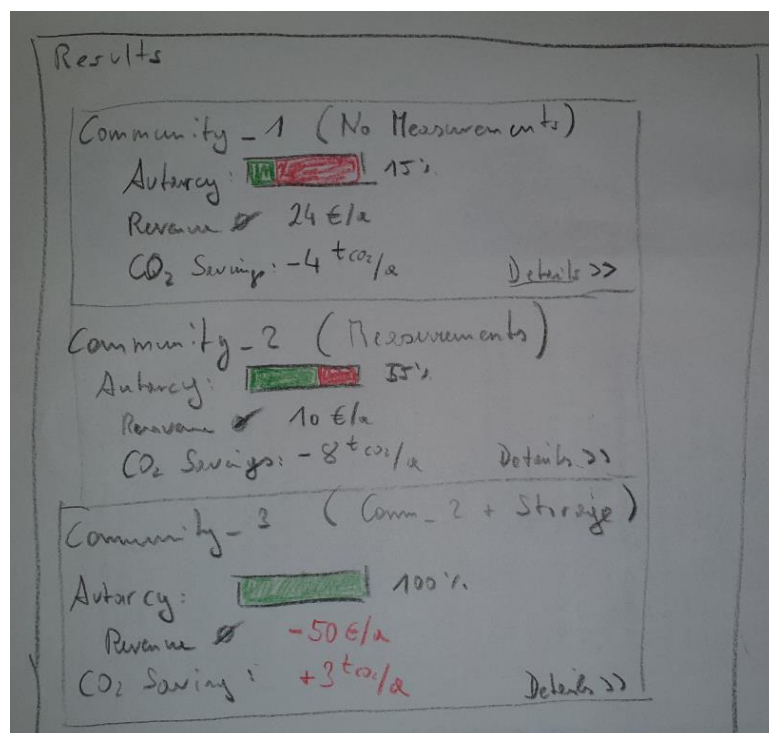 Results
Community_1 (No Measurements)
Autarcy: 15%
Revenue Ø 24 €/a
CO₂ Savings: -4 tCO₂/a
Details >>
Community_2 (Measurements)
Autarcy: 55%
Ø 10 €/a
CO₂ Savings: -8 tCO₂/a
Details >>
Community_3 (Comm_2 + Storage)
Autarcy: 100%
Revenue Ø -50 €/a
CO₂ Saving: +3 tCO₂/a
Details >>